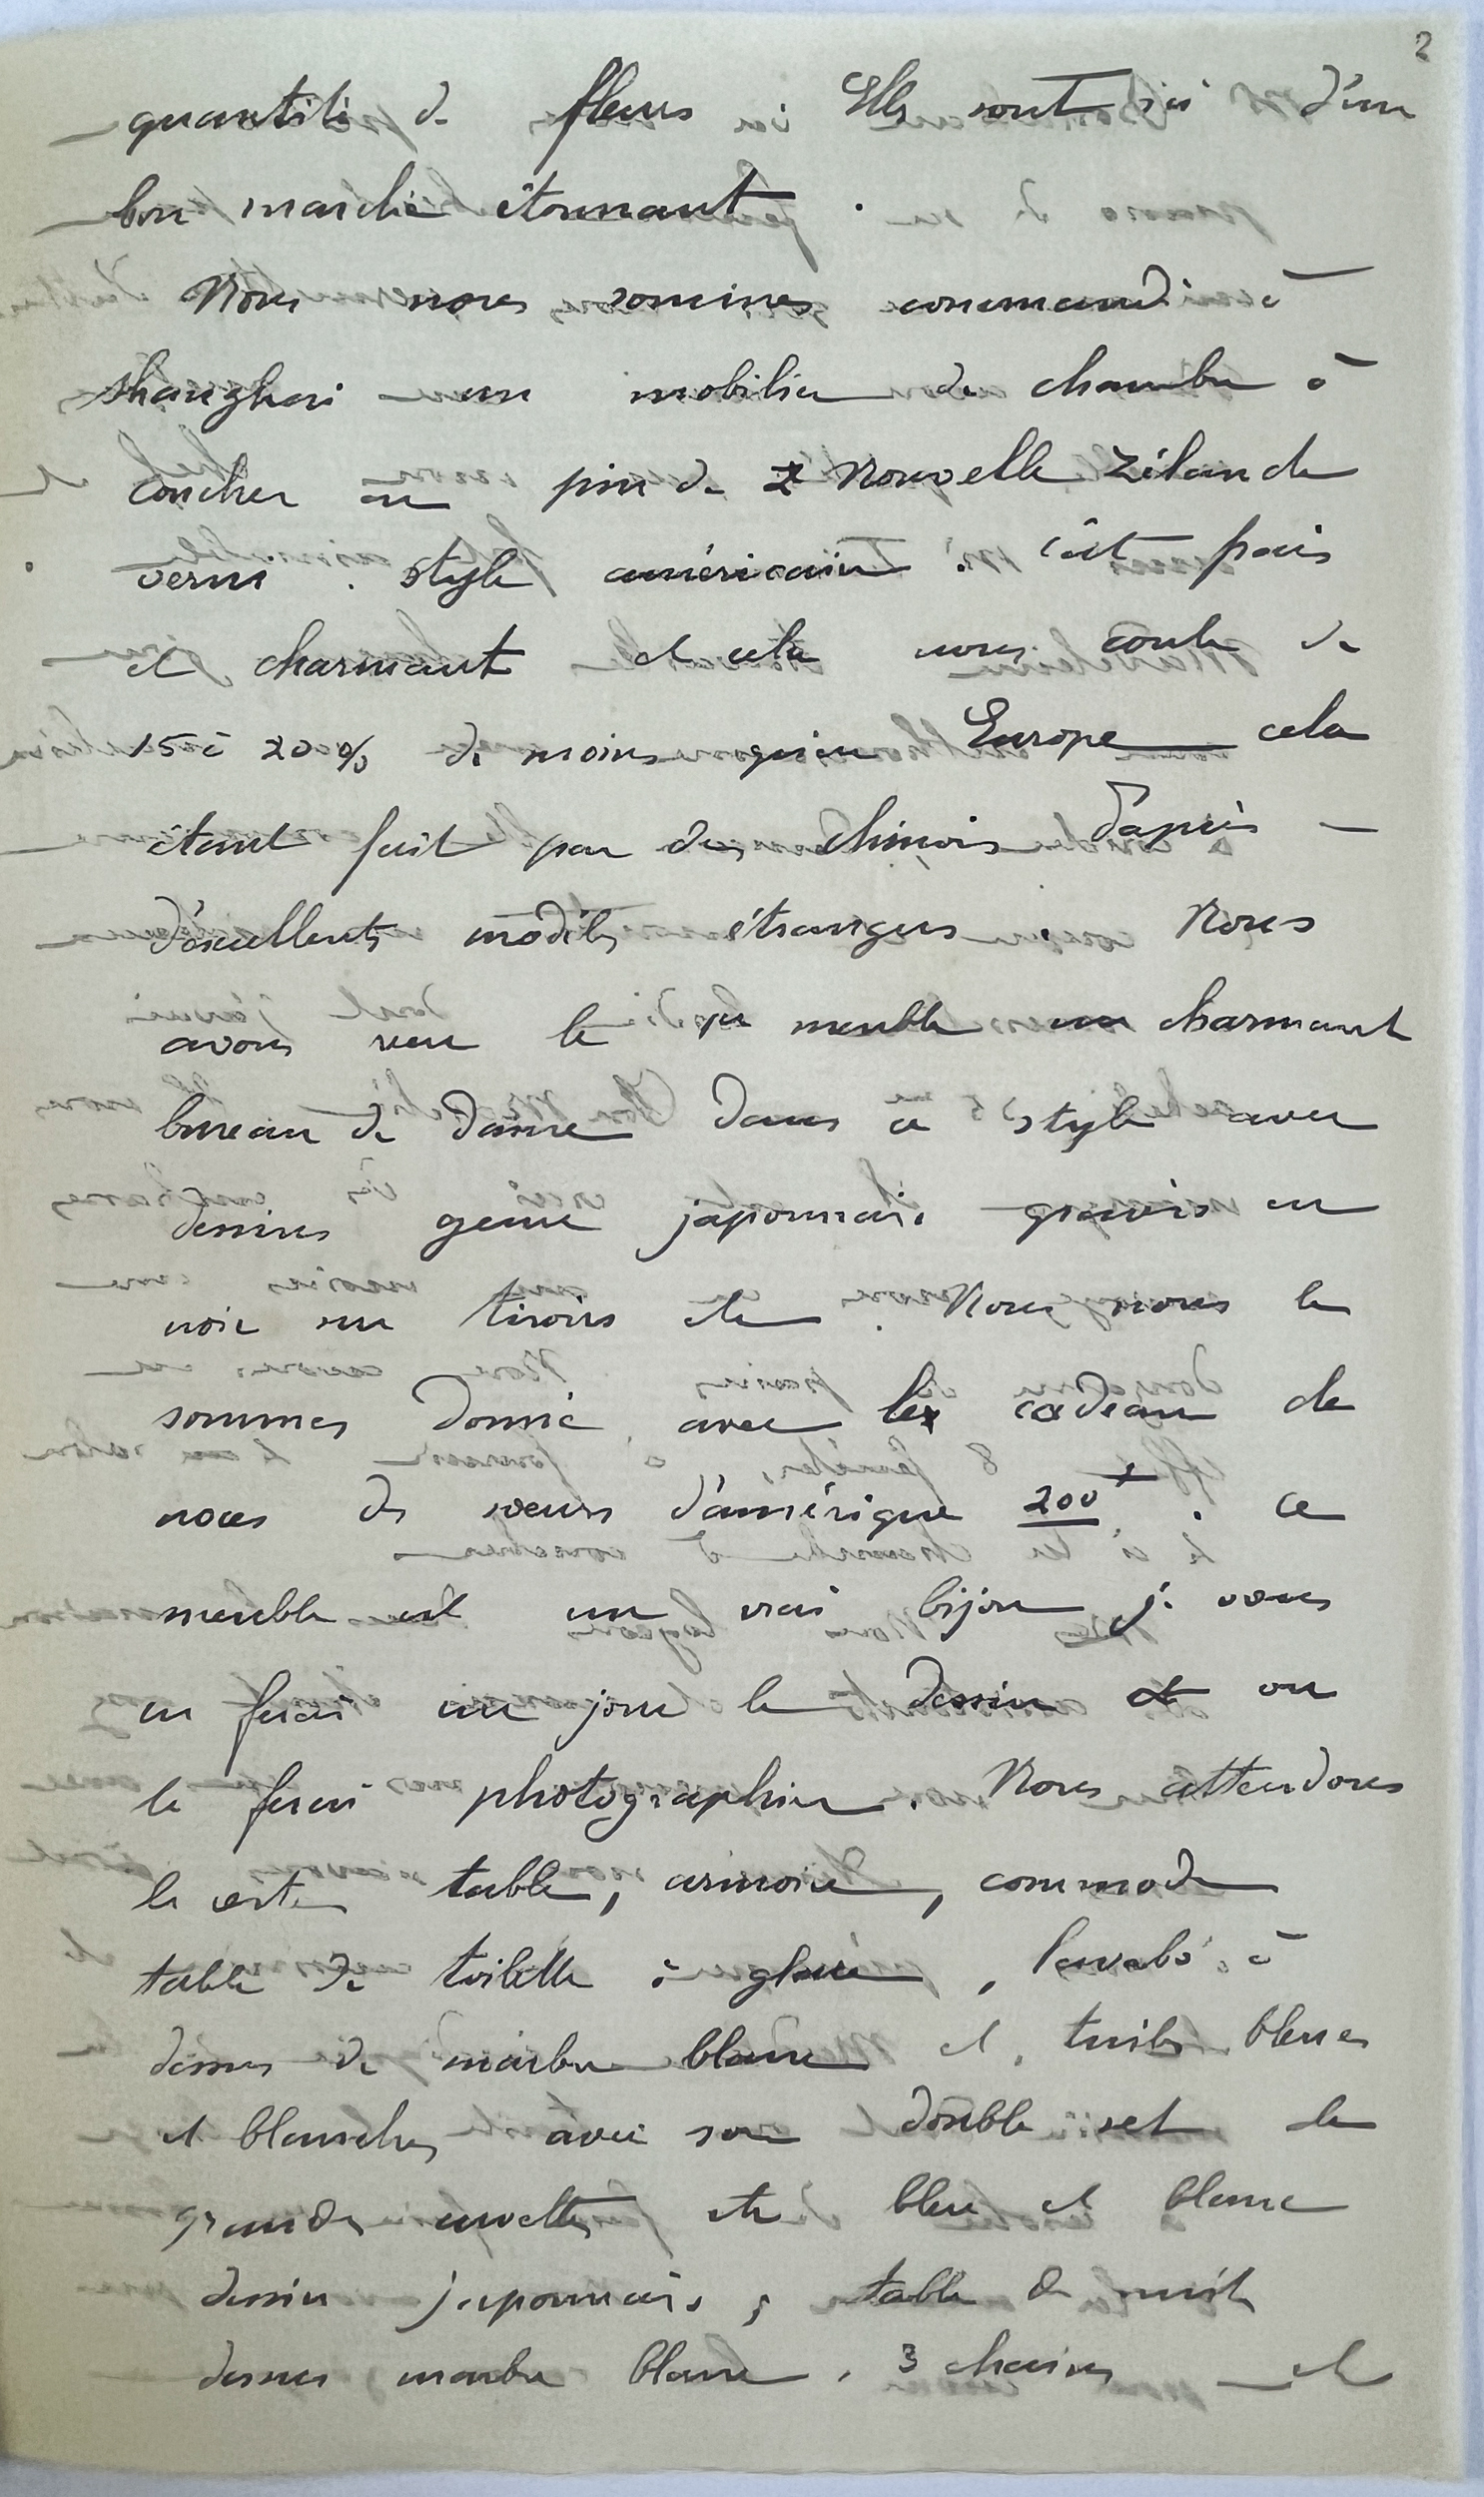 2
quantité de fleurs Elles sont ici d'un
bon marché étonnant .
Nous nous sommes commandé à
Shanghai un mobilier de chambre à
coucher en pin de Nouvelle Zélande
verni . style américain . c'est
et charmant et cela nous coute de
15 à 20 % de moins qu'en Europe cela
étant fait par des chinois d'après
d'excellents modèles étrangers . Nous
avons reçu le 1er meuble un charmant
bureau de dame dans ce style avec
dessins genre japonnais gravés en
noir sur tiroirs etc . Nous nous le
sommes donné avec le cadeau de
noces des soeurs d'amérique 200 f . ce
meuble est un vrai bijou je vous
en ferai un jour le dessin et ou
le ferai photographier . Nous attendons
le reste table , armoire , commode
table de toilette à glace , lavabo à
dessus de marbre blanc et tuiles bleues
et blanches avec son double set de
grandes cuvettes etc bleu et blanc
dessin japonnais , table de nuit
dessus marbre blanc , 3 chaises et